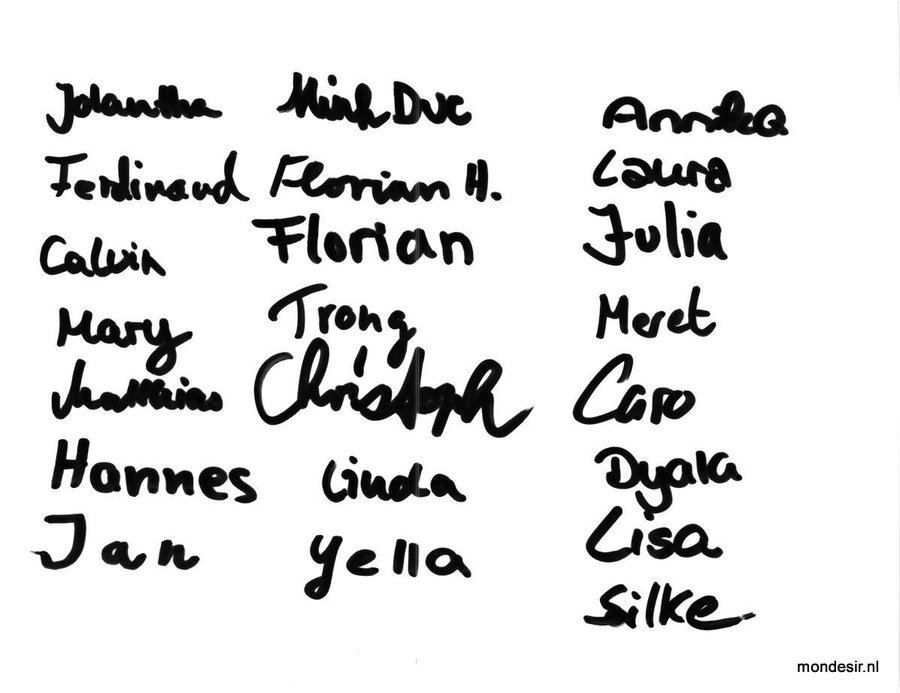 Jolantha
Ferdinand
Calvin
Mary
Matthias
Hannes
Jan
Minh Duc
Florian H.
Florian
Trong
Christoph
Linda
Yella
Annika
Laura
Julia
Meret
Caro
Dyala
Lisa
Silke
mondesir.nl